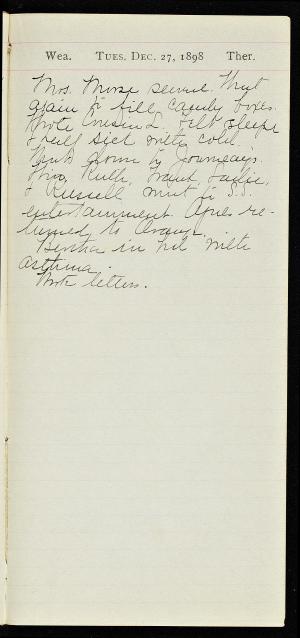 Wea. TUES. DEC. 27, 1898 Ther.
Mrs. Morse served. Went
again to fill candy boxes.
Wrote Cousin L. Felt sleepy
& half sick with cold.
Went down to
Ruth,
& Russell went to S.S.
entertainment. Agnes re-
turned to Orange.
Bertha in bed with
asthma.
Wrote letters.